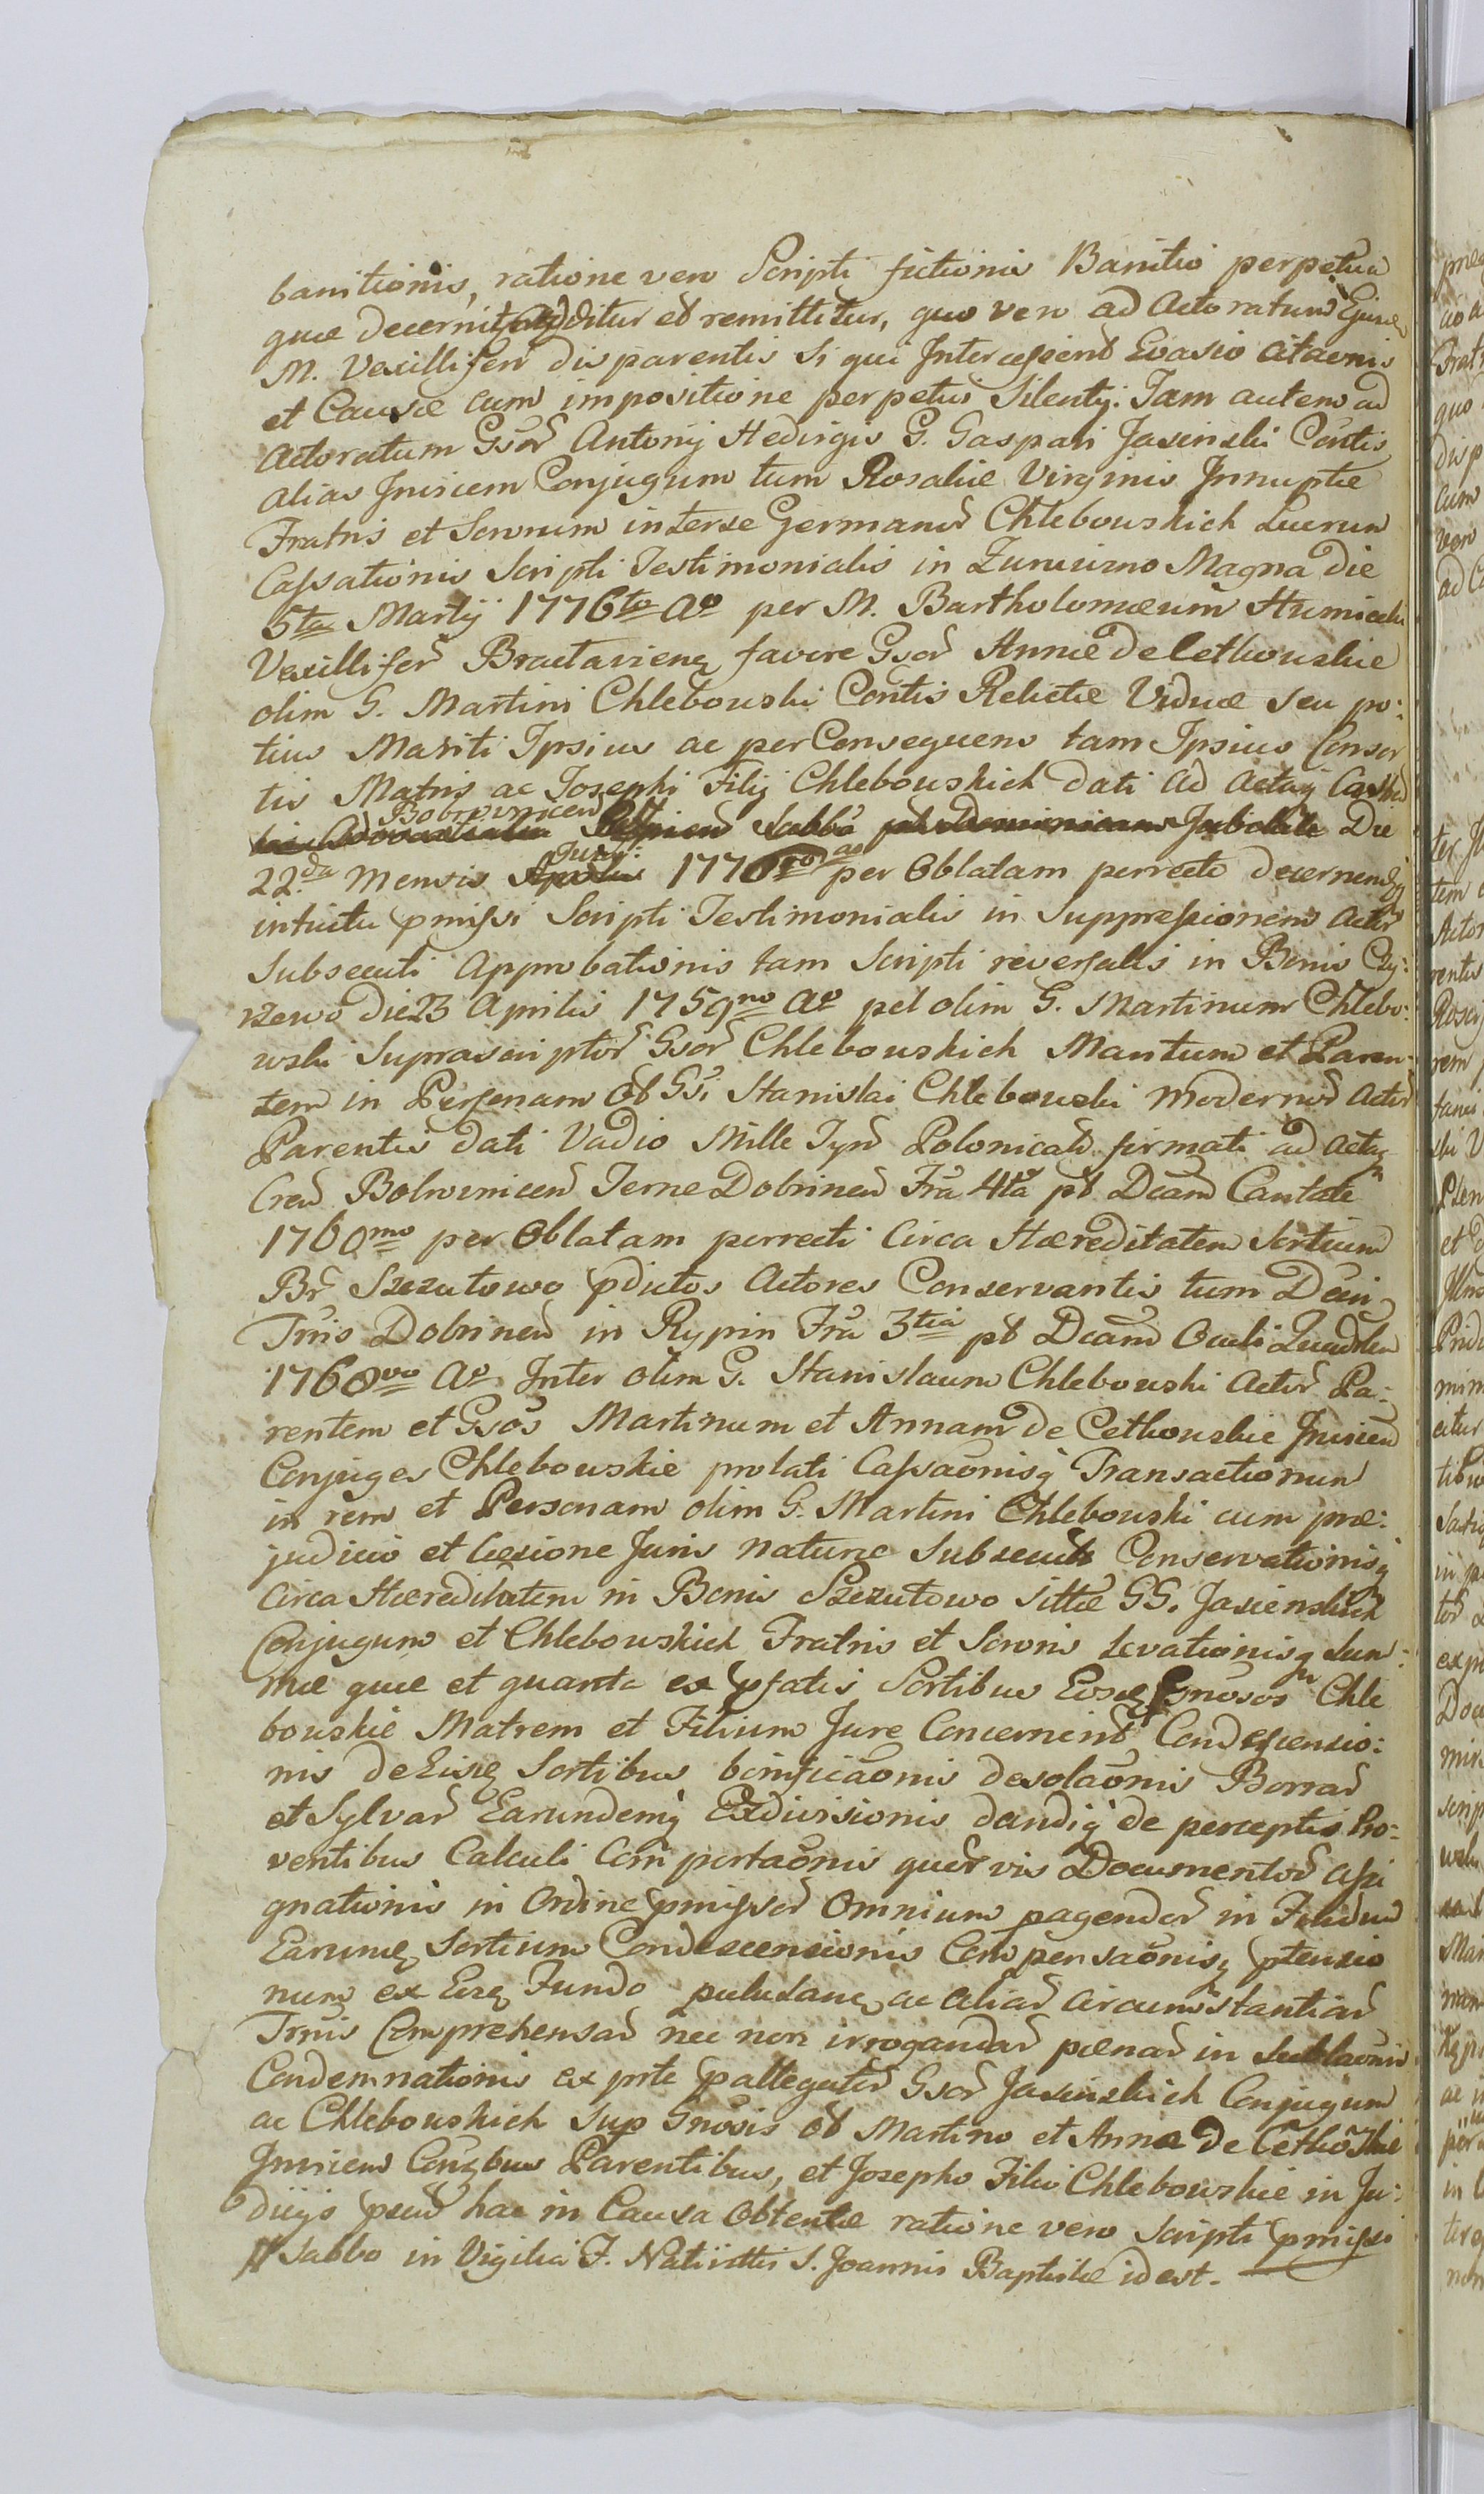 banitionis, ratione vero Scripti fictionis Banitio perpetua
quæ decernit additur et remittitur, quo vero ad Actoratum Ejusd
M. Vexilliferi disparentis Si qui Intercesserint Evasio citaonis
et Causæ cum impositione perpetui Silentij. Jam autem ad
Actoratum Gsor Antonij Hedvigis G. Gaspari Jasinski Contis
alias Invicem Conjugum tum Rosaliæ Virginis Innuptæ
Fratris et Sororum interse Germanor Chlebowskich Lucrum
Cassationis Scripti Testimonialis in Magna Die
5ta Martij 1776to Ao per M. Bartholomæum
Vexillifer Braclaviens favore Gsor Annæ de Cetkowskie
olim G. Martini Chlebowski Contis Relictæ Viduæ seu po:
tius Mariti Ipsius ac per Consequens tam Ipsius Consor
tis Matris ac Josephi Filij Chlebowskich dati ad Actaq Castr
Bobrovnicen
Sabbo Die
Junij
22da Mensis 1776to ao per Oblatam perrecti decernendq
intuitu pmissi Scripti Testimonialis in Suppressionem Actor
Subsecuti Approbationis tam Scripti reversalis in Bonis
rzewo die 23 Aprilis 1759no Ao pel olim G. Martinum Chlebo:
wski Suprascriptor Gsor Chlebowskich Maritum et Paren
tem in Personam Ol Gsi Stanislai Chlebowski Modernor Actor
Parentis dati Vadio Mille Tyn Polonicali firmati ad Acta
Cren Bobrovnicen Terræ Dobrinen Fra 4ta pt Dcam Cantate
1760mo per Oblatam perrecti Circa Hæreditatem Sortium
Br Szczutowo pdictos Actores Conservantis tum Decri
Tris Dobrinen in Rypin Fra 3tia pt Dcam Oculi Quadrlem
1768vo Ao Inter olim G. Stanislaum Chlebowski Actor Pa:
rentem et Gsos Martinum et Annam de Cetkowskie Invicem
Conjuges Chlebowskie prolati Cassaonisq Transactionum
in rem et Personam olim G. Martini Chlebowski cum præ:
judicio et læsione Juris naturæ Subsecuti Conservationisq
Circa Hæreditatem in Bonis Szczutowo sittæ GG. Jasienskich
Conjugum et Chlebowskich Fratris et Sororis Levationisq Sum:
mæ quæ et quanta ex pfatis Sortibus Eosdq Gnosos Chle
bowskie Matrem et Filium Jure Concernent Condescensio:
nis de Eisdq Sortibus bonificaonis desolaonis Borrar
et Sylvar Earundemq Exdivisionis dandiq de perceptis Pro:
ventibus Calculi Comportaonis quorvis Documentor assi
gnationis in Ordine pmissor Omnium pagendor in Fundum
Earumdq Sortium Condescensionis Compensaonisq ptensio
num ex Eodq Fundo ac aliar circumstantiar
Trnis Comprehensar nec non irrogandar pænar in Sublaonis
Condemnationis ex pte pallegator Gsor Jasinskich Conjugum
ac Chlebowskich Sup Gnosis Ol Martino et Anna de Cetkoskie
Invicem Congbus Parentibus, et Josepho Filio Chlebowskie in Ju:
dicijs hac in Causa Obtentæ ratione vero Scripti pmissi
// Sabbo in Vigilia F. Nativittis S. Joannis Baptistæ idest.